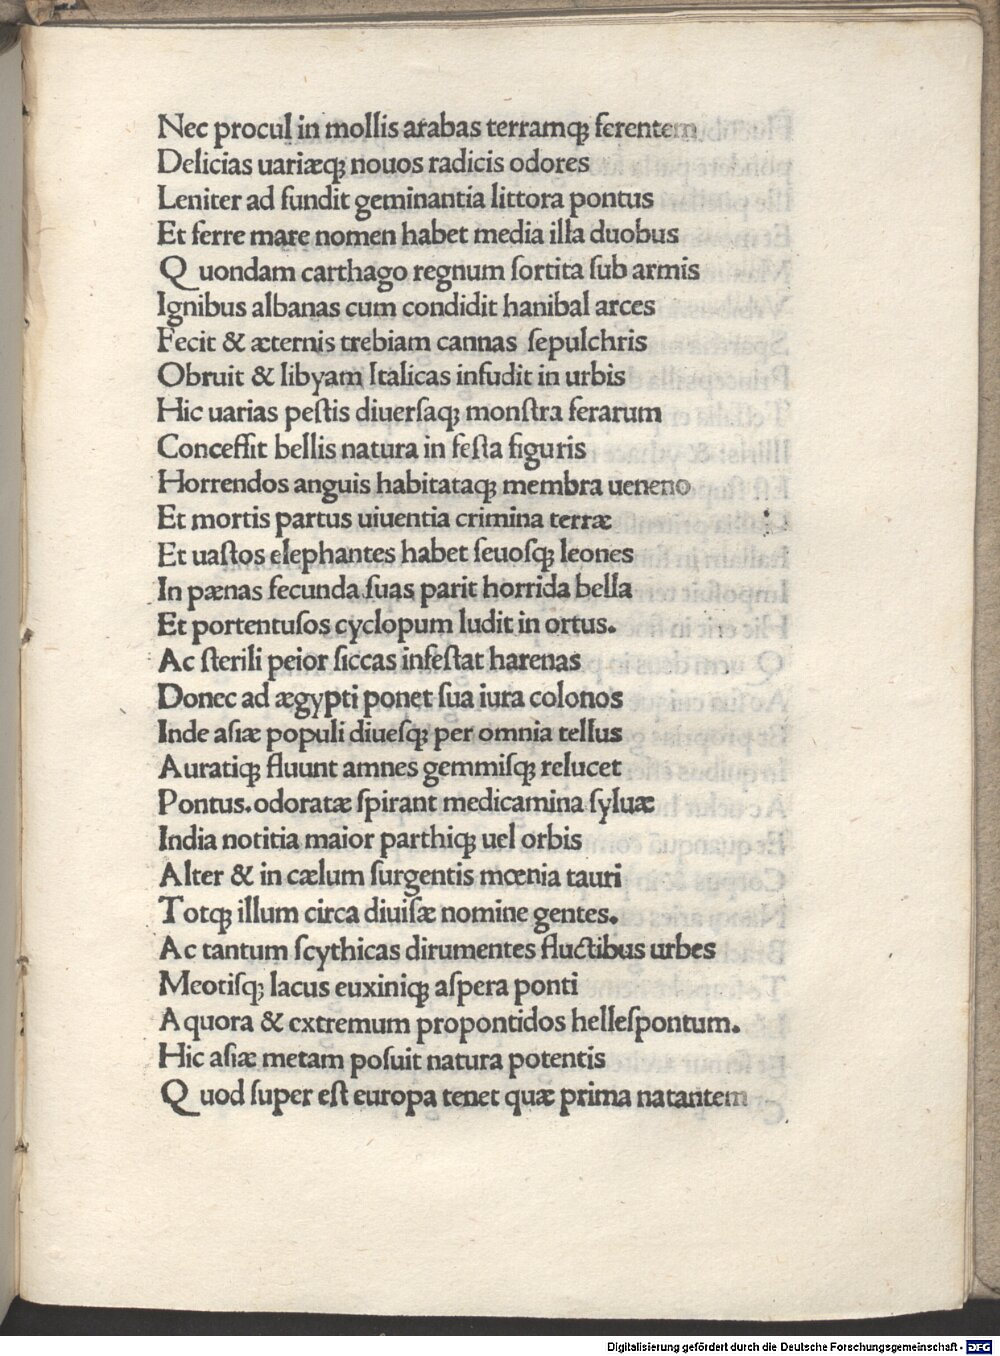 Nec procul in mollis arabas terramqꝫ ferentem
Delicias uariæqꝫ nouos radicis odores
Leniter ad fundit geminantia littora pontus
Et ferre mare nomen habet media illa duobus
Q uondam carthago regnum ſortita ſub armis
Ignibus albanas cum condidit hanibal arces
Fecit & æternis trebiam cannas ſepulchris
Obruit & libyam Italicas infudit in urbis
Hic uarias peſtis diuerſaqꝫ monſtra ferarum
Conceſſit bellis natura in feſta figuris
Horrendos anguis habitataqꝫ membra ueneno
Et mortis partus uiuentia crimina terræ
Et uaſtos elephantes habet ſeuoſqꝫ leones
In pænas fecunda ſuas parit horrida bella
Et portentuſos cyclopum ludit in ortus.
Ac ſterili peior ſiccas infeſtat harenas
Donec ad ægypti ponet ſua iura colonos
Inde aſiæ populi diueſqꝫ per omnia tellus
Auratiqꝫ fluunt amnes gemmiſqꝫ relucet
Pontus. odoratæ ſpirant medicamina ſyluæ
India notitia maior parthiqꝫ uel orbis
Alter & in cælum ſurgentis mœnia tauri
Totqꝫ illum circa diuiſæ nomine gentes.
Ac tantum ſcythicas dirumentes fluctibus urbes
Meotiſqꝫ lacus euxiniqꝫ aſpera ponti
Aquora & extremum propontidos helleſpontum.
Hic aſiæ metam poſuit natura potentis
Q uod ſuper eſt europa tenet quæ prima natantem
Digitalisierung gefördert durch die Deutsche Forschungsgemeinschaft - DFG